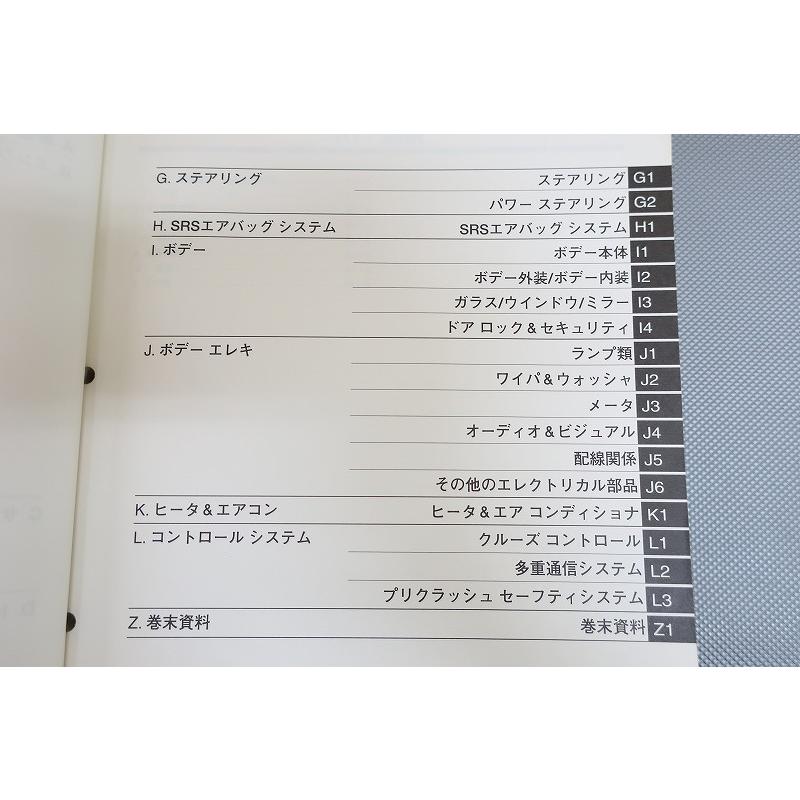 G. ステアリング ステアリング G1
パワー ステアリング G2
H. SRSエアバッグ システム SRSエアバッグ システム H1
I. ボデー ボデー本体 I1
ボデー外装/ボデー内装 I2
ガラス/ウインドウ/ミラー I3
ドア ロック&セキュリティ I4
J. ボデー エレキ ランプ類 J1
ワイパ&ウォッシャ J2
メータ J3
オーディオ&ビジュアル J4
配線関係 J5
その他のエレクトリカル部品 J6
K. ヒータ&エアコン ヒータ&エア コンディショナ K1
L. コントロール システム クルーズ コントロール L1
多重通信システム L2
プリクラッシュ セーフティシステム L3
Z. 巻末資料 巻末資料 Z1